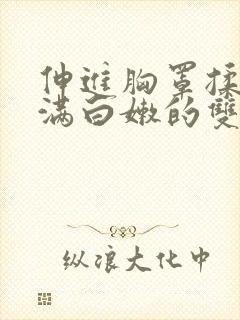 伸进胸罩揉
满白嫩的雙
纵浪大化中